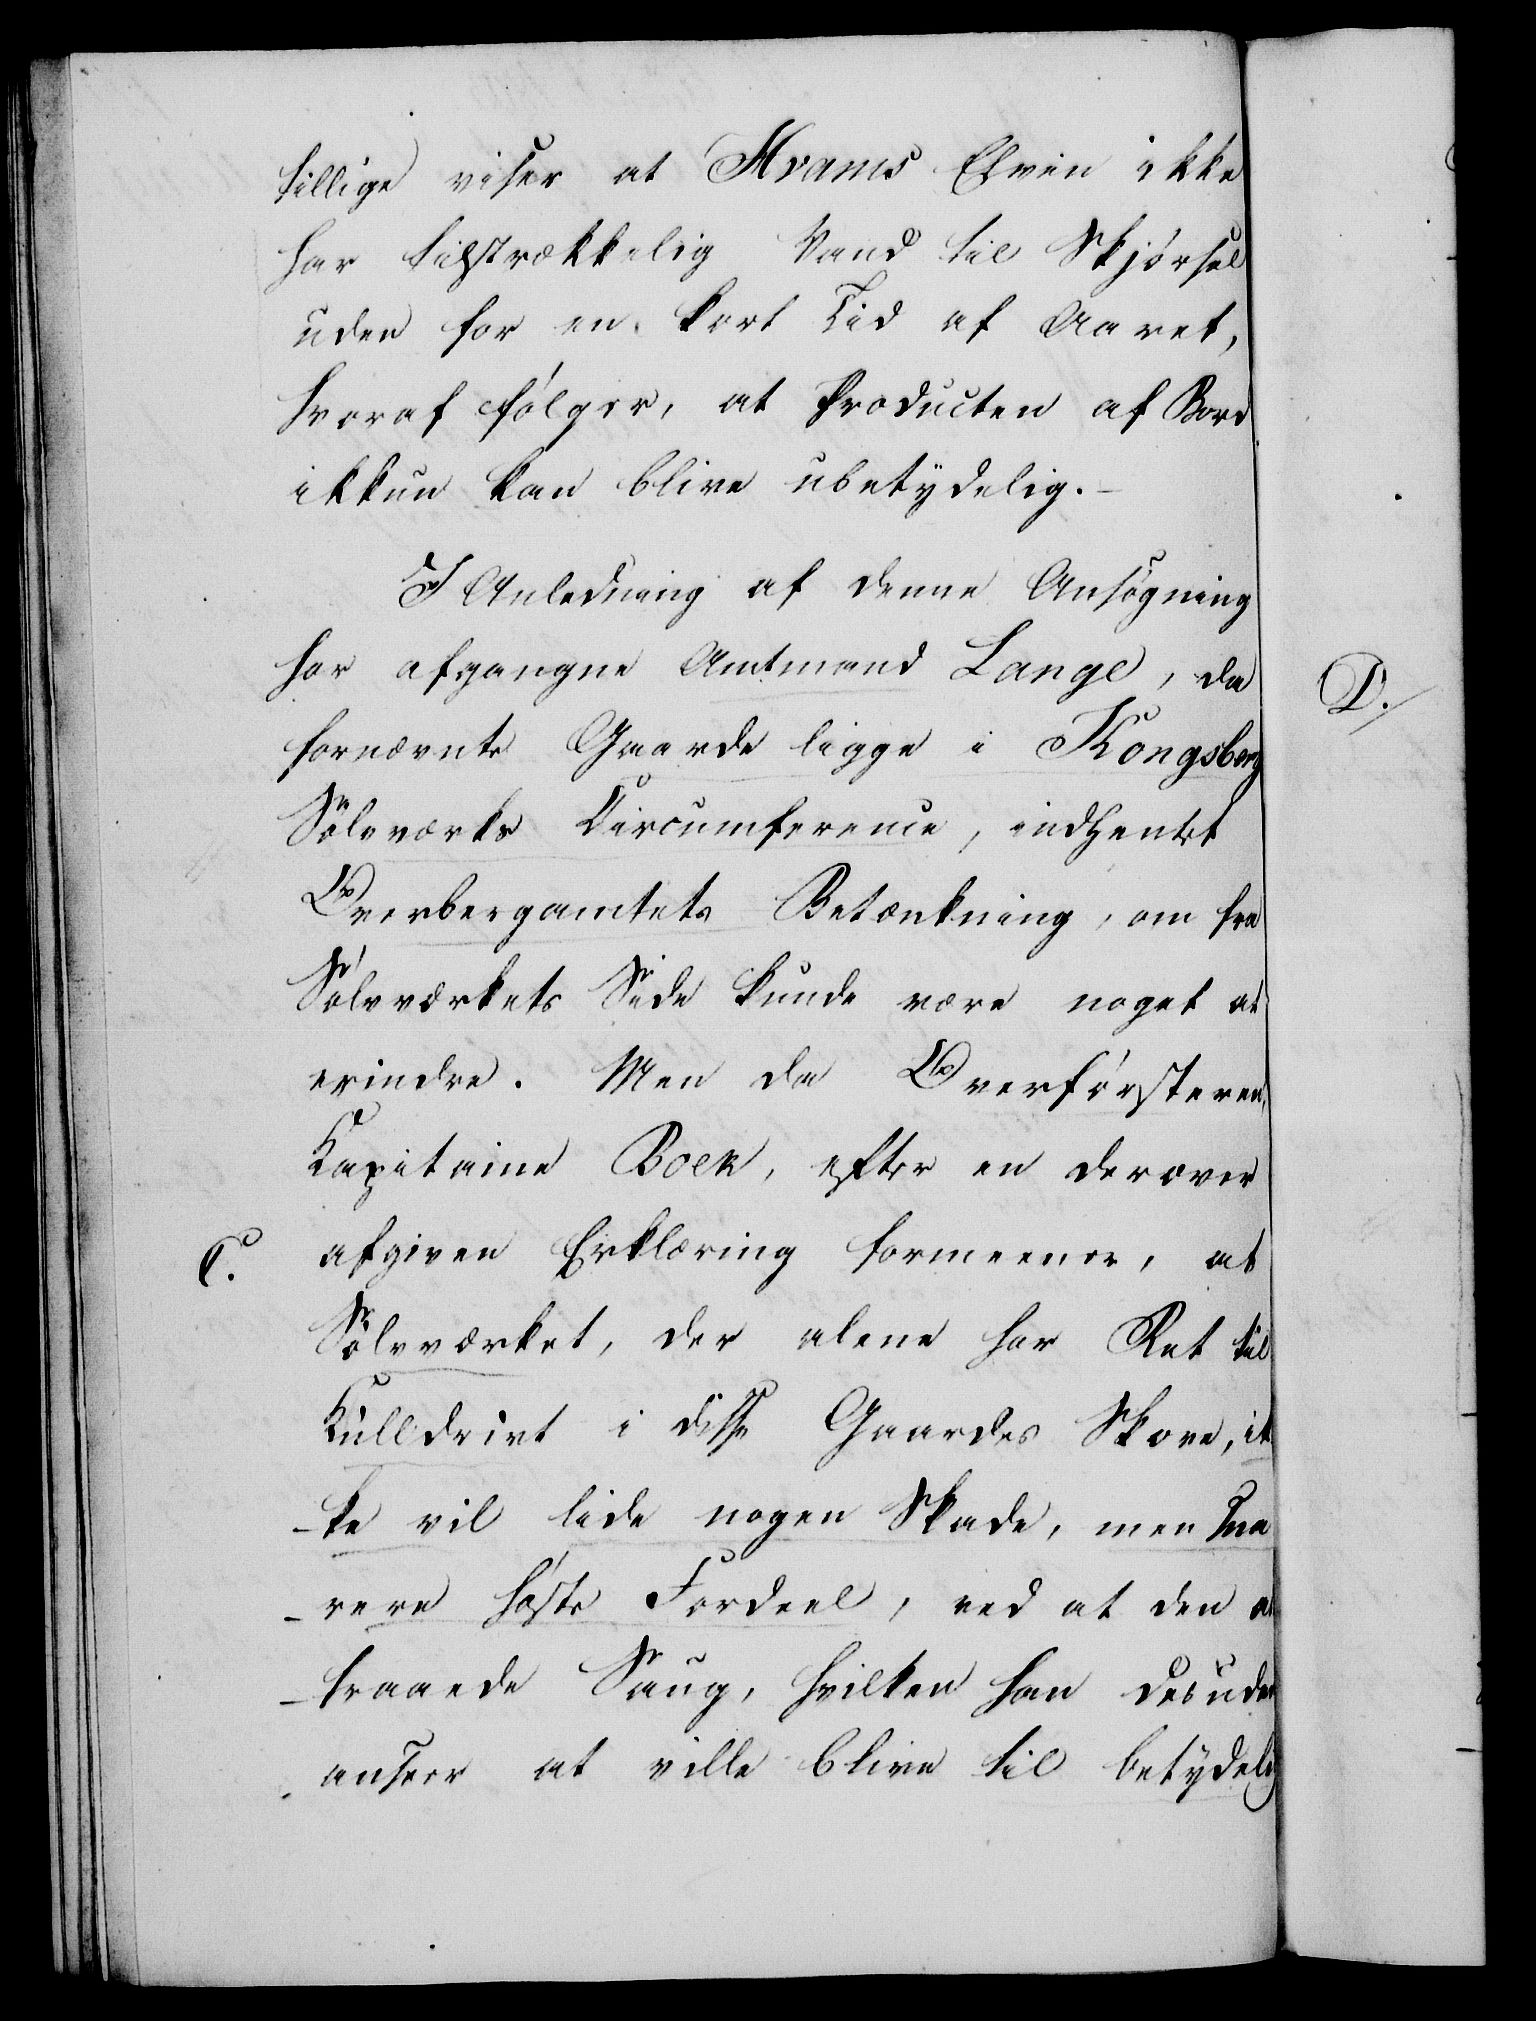 tillige viser at Hvams Elven ikke
har tilstrækkelig Vand til Skjörsel
uden for en kort Tid af Aaret,
hvoraf fölger, at Producten af Bord
ikkun kan blive ubetydelig.-
I Anledning af denne Ansögning
har afgangne Amtmand Lange, da
fornævnte Gaarde ligge i Kongsberg
Sölvværks Circumference, indhentet
Overbergamtets Betænkning, om fra
Sölvværkets Side kunde være noget at
erindre. Men da Overförsteren,
Kapitaine Boek, efter en derover
C. afgiven Erklæring formeener, at
Sölvværket, der alene har Ret til
Kulldrivt i disse Gaardes Skove, ik
-ke vil lide nogen Skade, men sna
-rere höste Fordeel, ved at den at
-traaede Saug, hvilken han desuden
anseer at ville blive til betydelig
D.